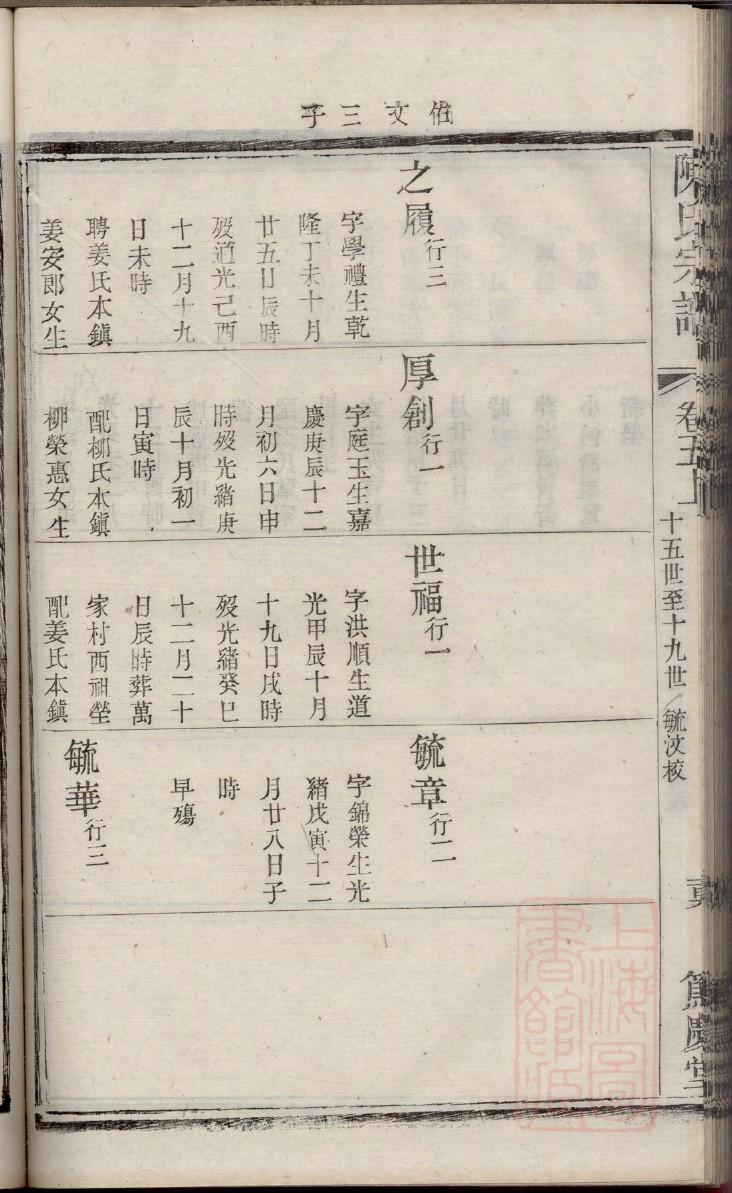 佑文三子
陳氏宗譜
卷五上
十五世至十九世
毓汶校
篤慶堂
之履行三
字學禮生乾
隆丁未十月
廿五日辰時
歿道光己酉
十二月十九
日未時
聘姜氏本鎮
姜安郎女生
厚創行一
字庭玉生嘉
慶庚辰十二
月初六日申
時歿光緒庚
辰十月初一
日寅時
配柳氏本鎮
柳榮惠女生
世福行一
字洪順生道
光甲辰十月
十九日戌時
歿光緒癸巳
十二月二十
日辰時葬萬
家村西祖塋
配姜氏本鎮
毓章行二
字錦榮生光
緒戊寅十二
月廿八日子
時
早殤
毓華行三
上海圖書館藏